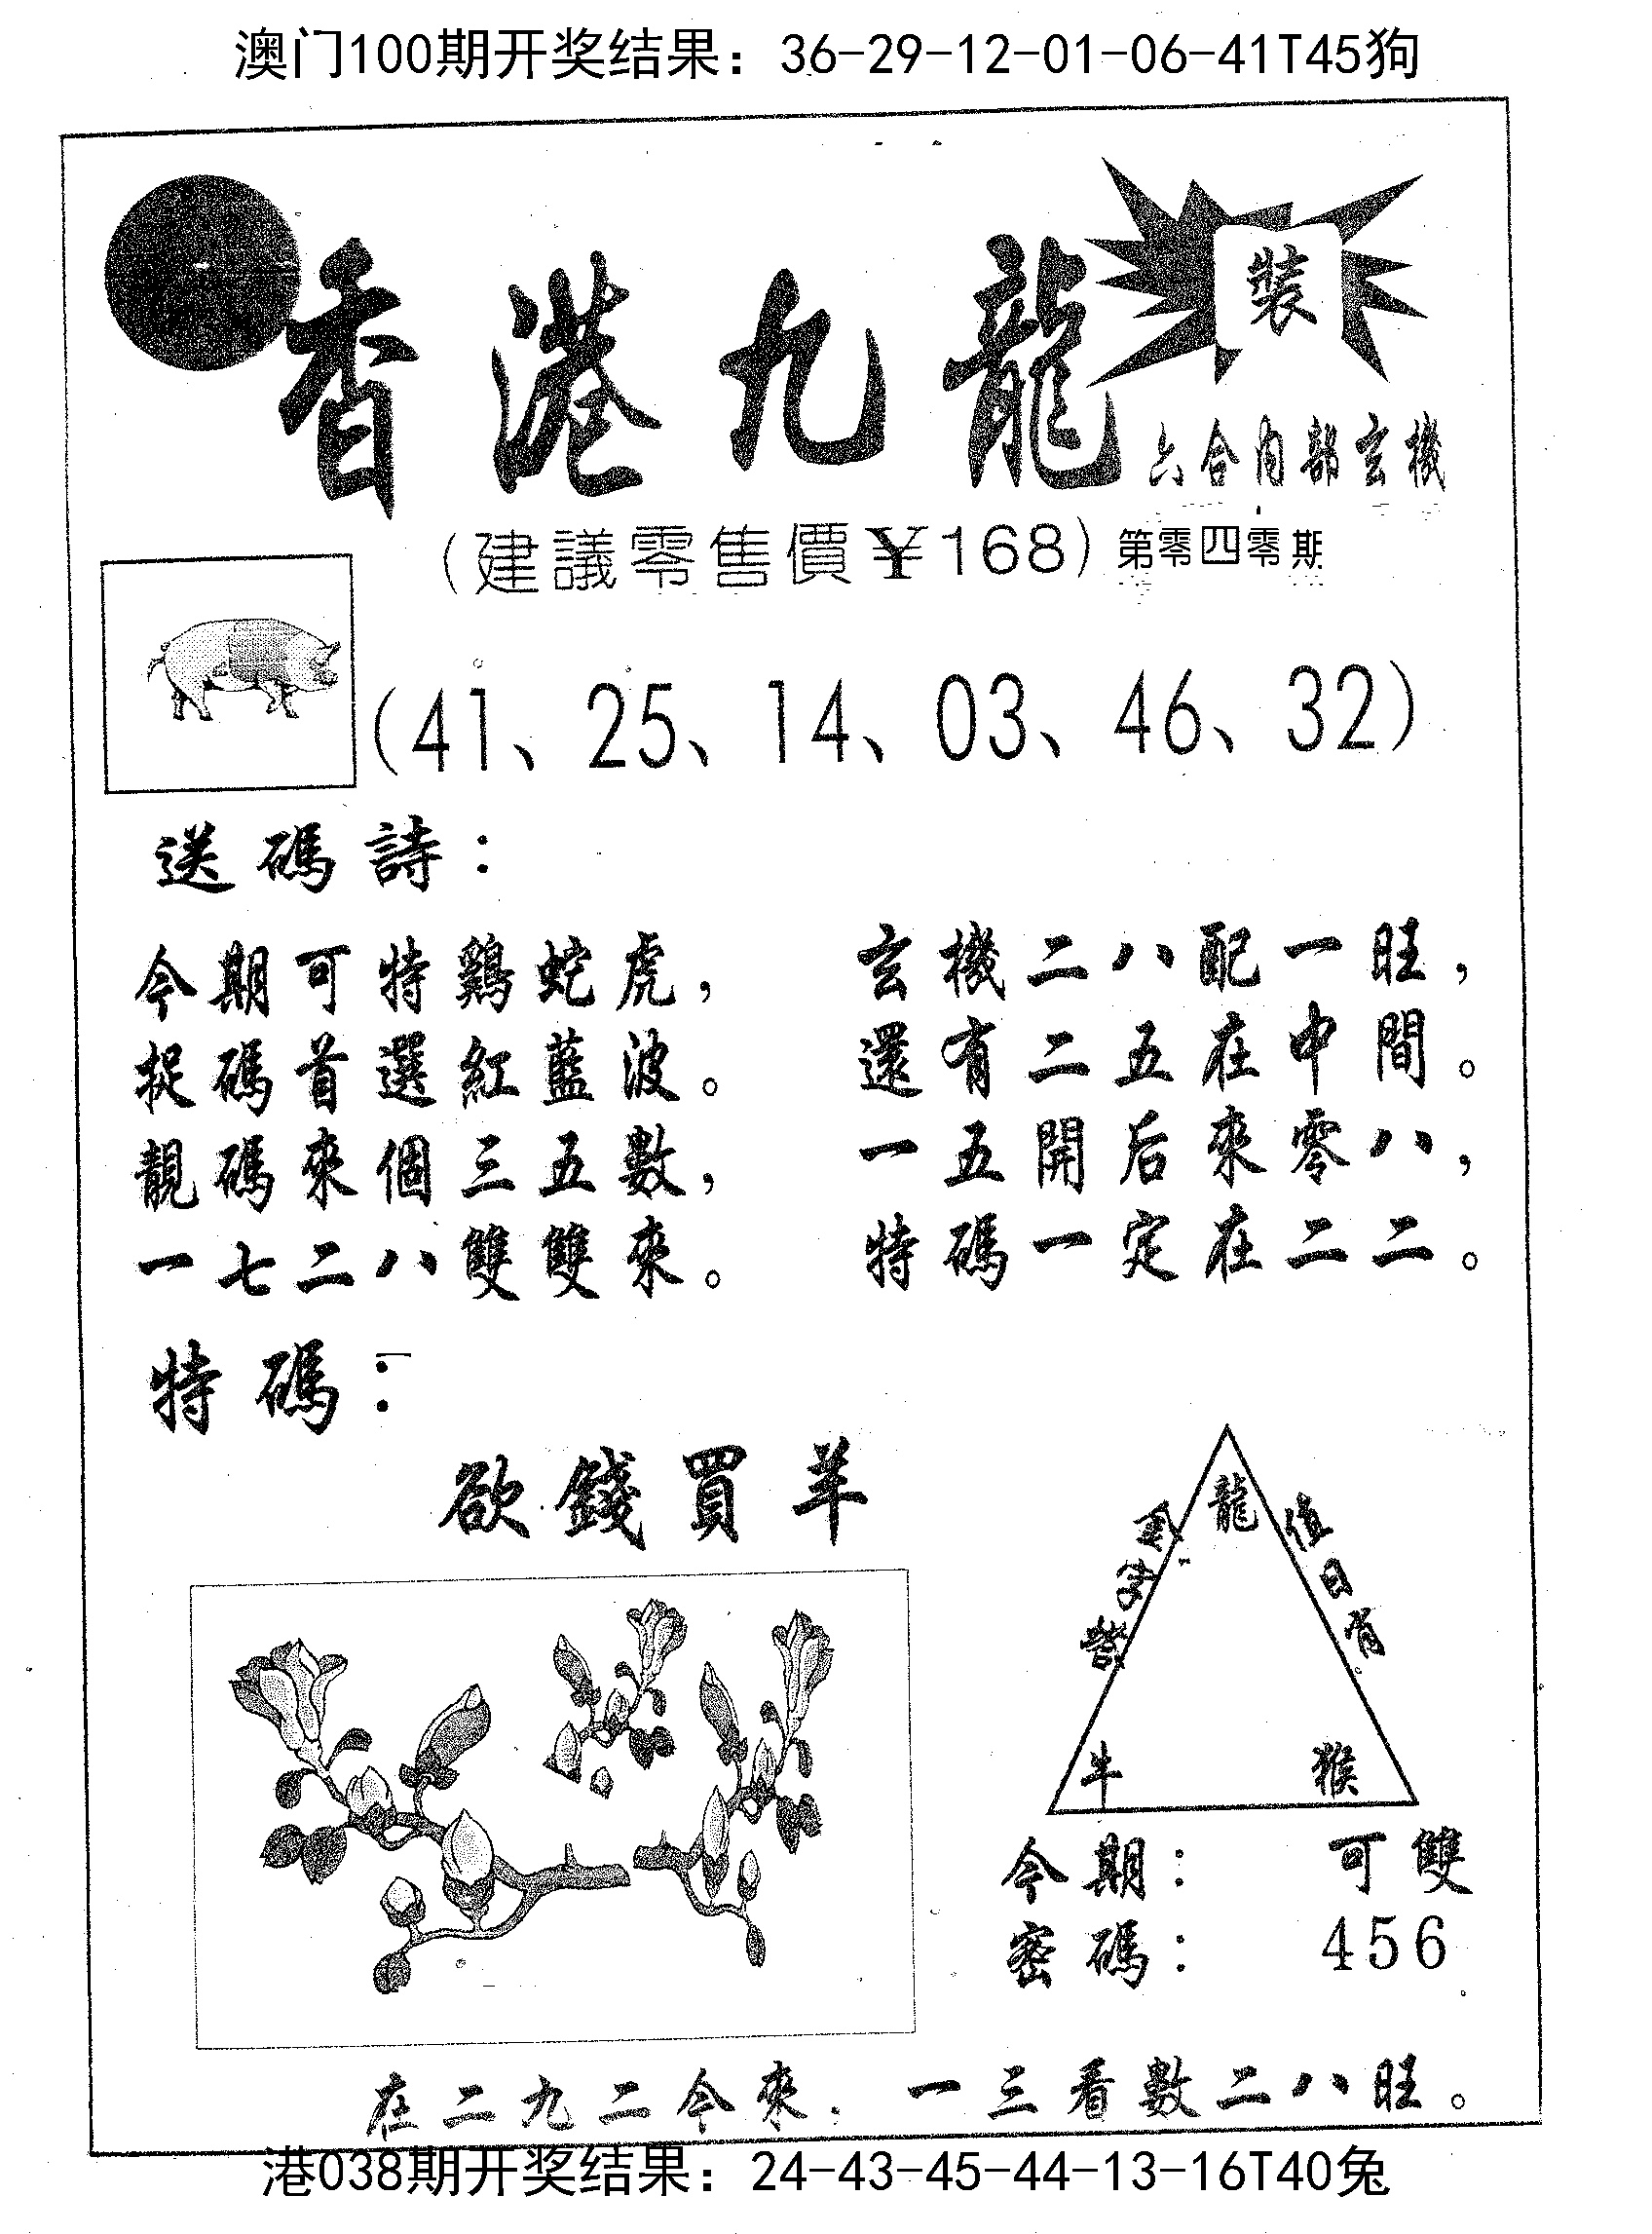 澳门100期开奖结果：36-29-12-01-06-41T45狗
裝
香港九龍
六合内部玄機
(建議零售價¥168)第零四零期
(41、25、14、03、46、32)
送碼詩：
今期可特鷄蛇虎，
捉碼首選紅藍波。
靚碼來個三五數，
一七二八雙雙來。
玄機二八配一旺，
還有二五在中間。
一五開后來零八，
特碼一定在二二。
特碼：
欲錢買羊
龍
值日肖
牛
猴
今期：可雙
密碼：456
在二九二今來．一三看數二八旺。
港038期开奖结果：24-43-45-44-13-16T40兔